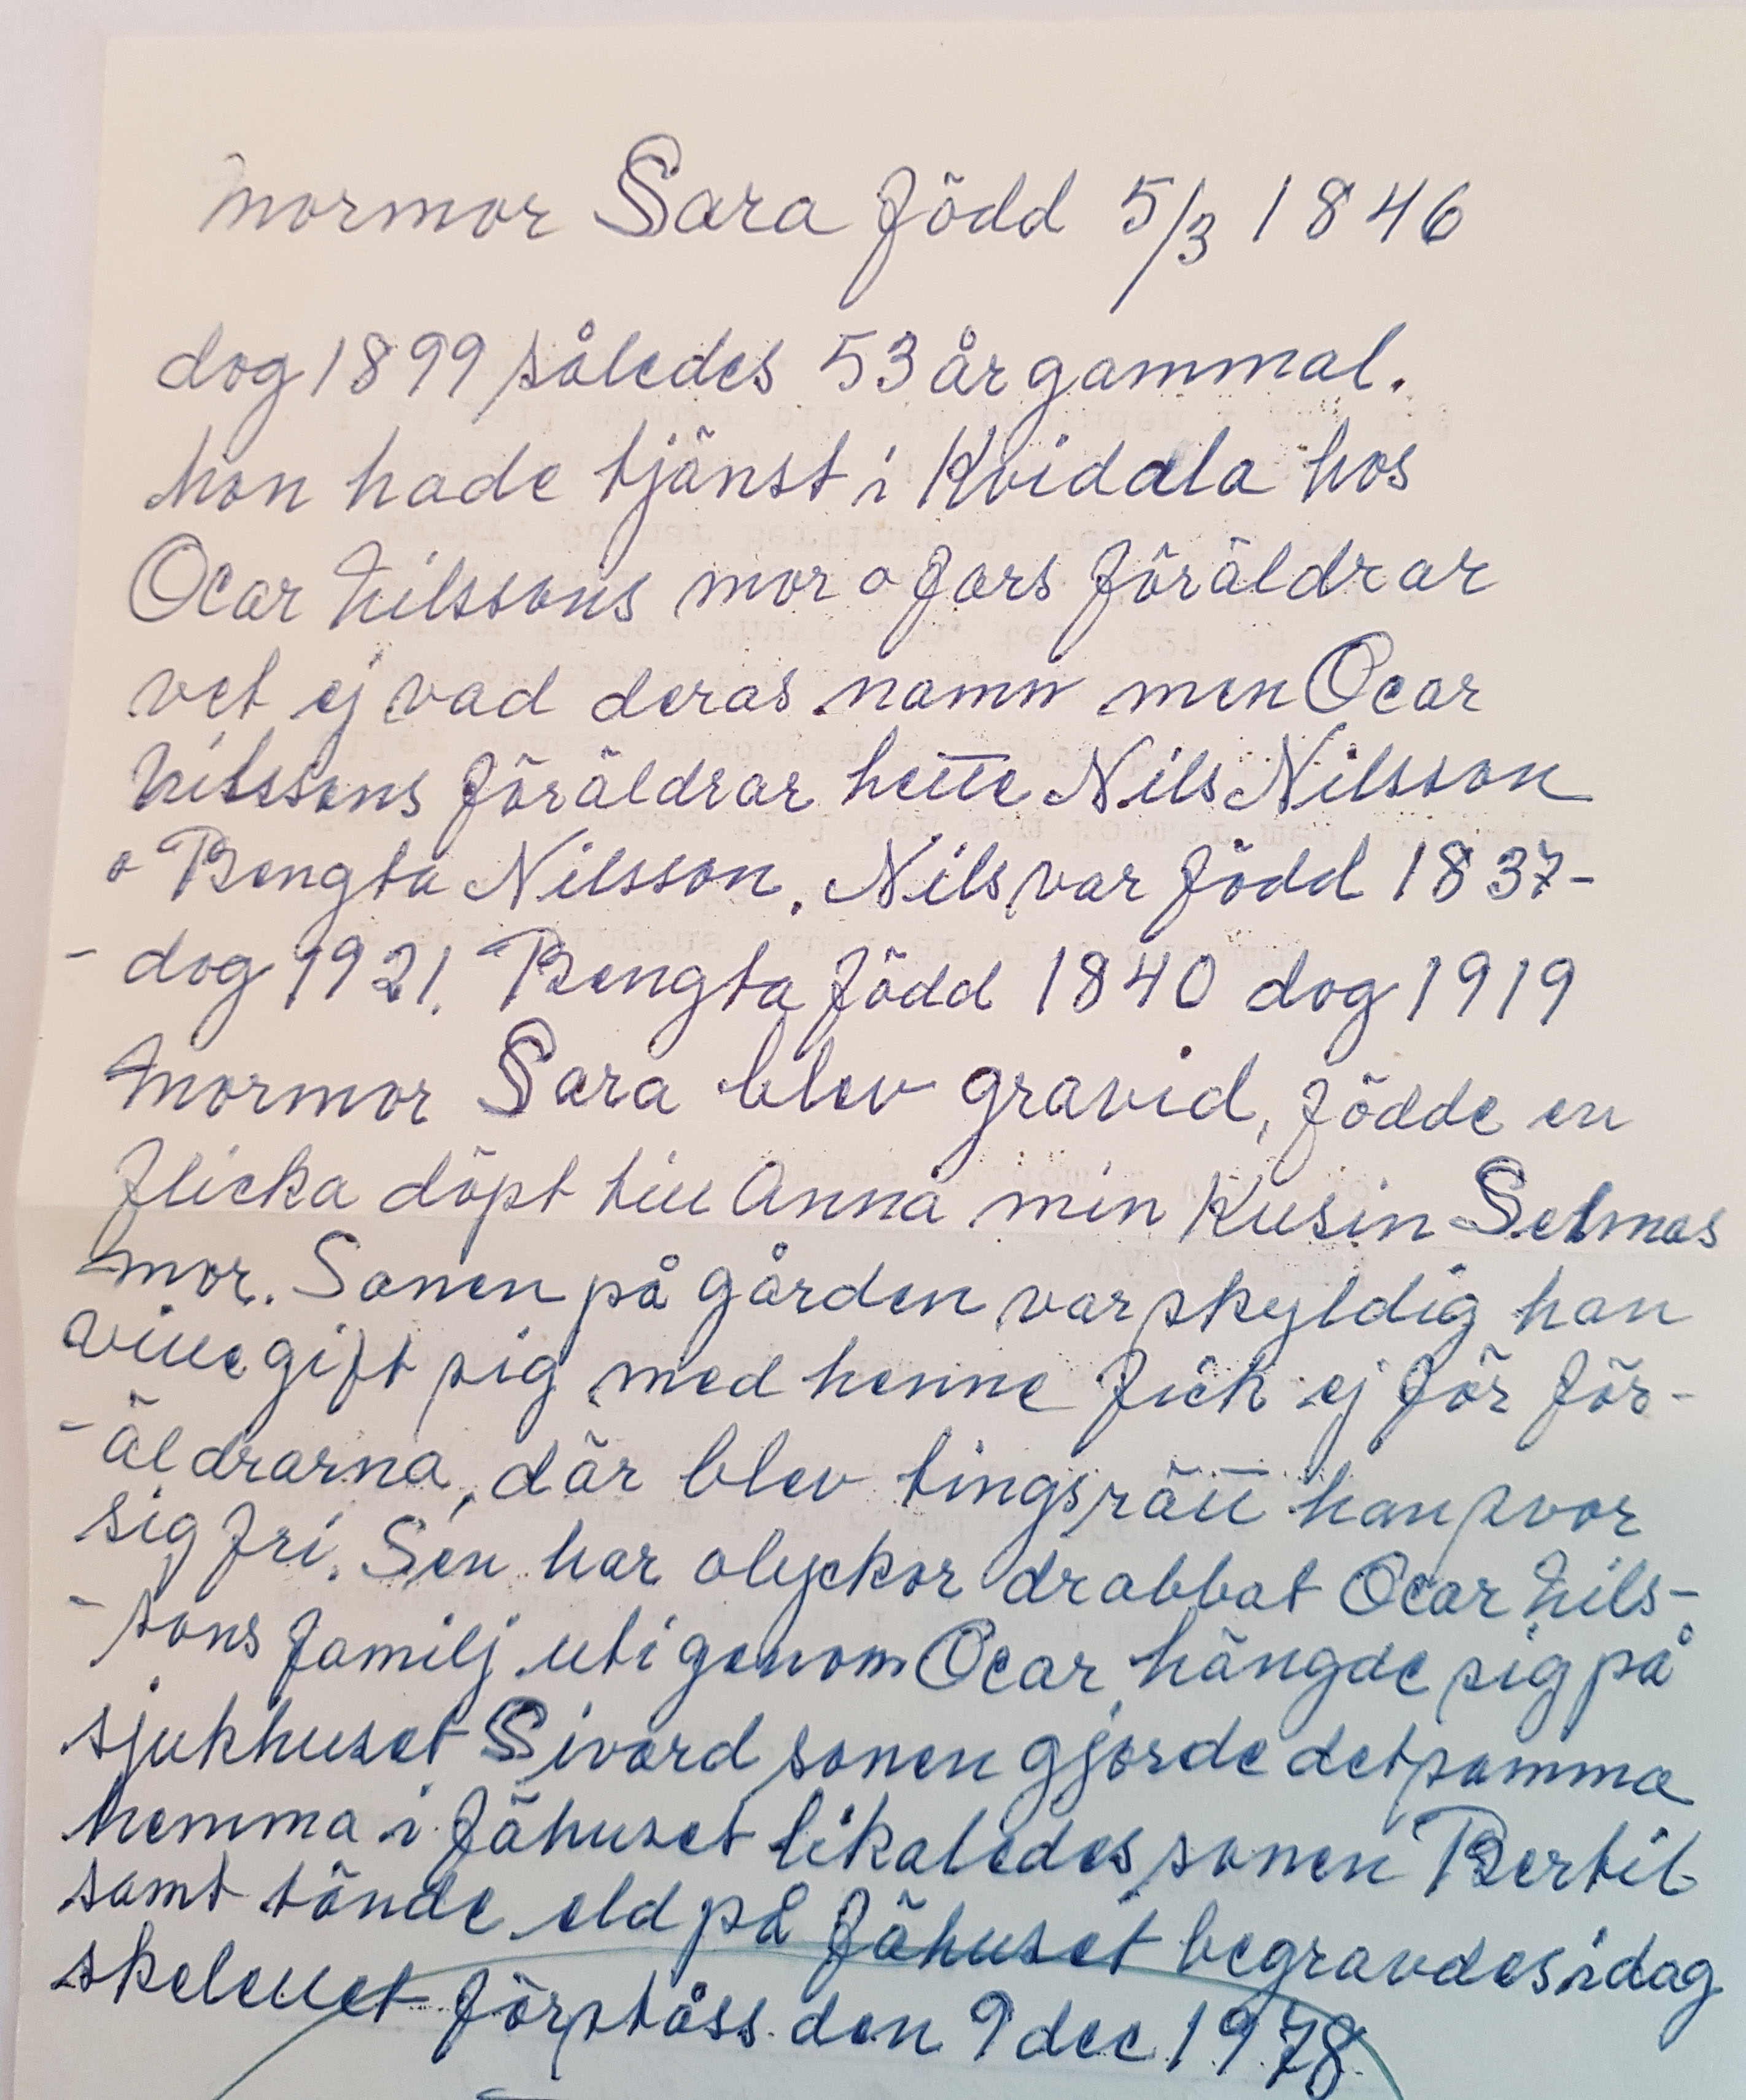 mormor Sara född 5/3 1846
dog 1899 således 53 år gammal.
hon hade tjänst i Kvidala hos
Ocar Nilssons mor o fars föräldrar
vet ej vad deras namn men Ocar
Nilssons föräldrar hette Nils Nilsson
o Bengta Nilsson. Nils var född 1837-
- dog 1921. Bengta född 1840 dog 1919
mormor Sara blev gravid, födde en
flicka döpt till Anna min Kusin Selmas
mor. Sonen på gården var skyldig han
ville gift sig med henne fick ej för för-
- äldrarna, där blev tingsrätt han svor
sig fri. Sen har olyckor drabbat Ocar Nils-
- sons familj uti genom Ocar hängde sig på
sjukhuset Sivard sonen gjorde det samma
hemma i fähuset likaledes sonen Bertil
samt tände eld på fähuset begravdes idag
skelettet förståss den 9 dec 1978